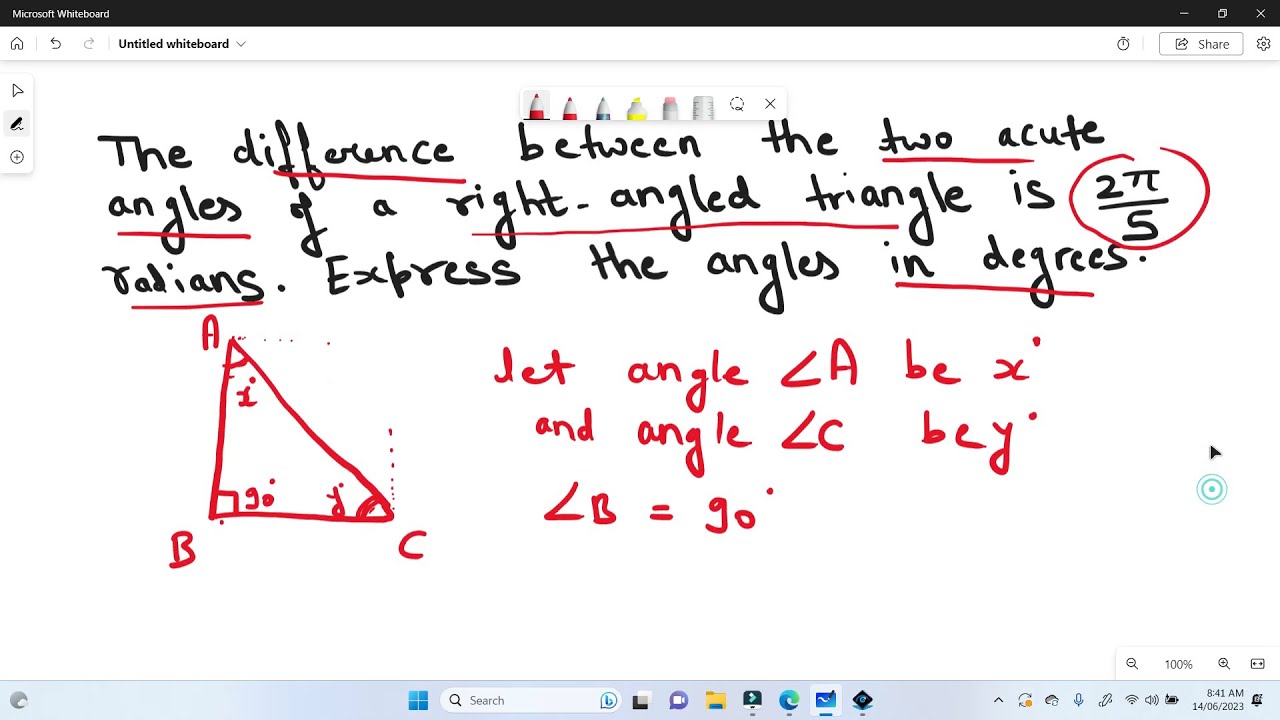 Microsoft Whiteboard
Untitled whiteboard
Share
The difference between the two acute
angles of a right-angled triangle is 2π/5
radians. Express the angles in degrees.
A
x°
90°
y°
B
C
let angle ∠A be x°
and angle ∠C be y°
∠B = 90°
100%
Search
8:41 AM
14/06/2023